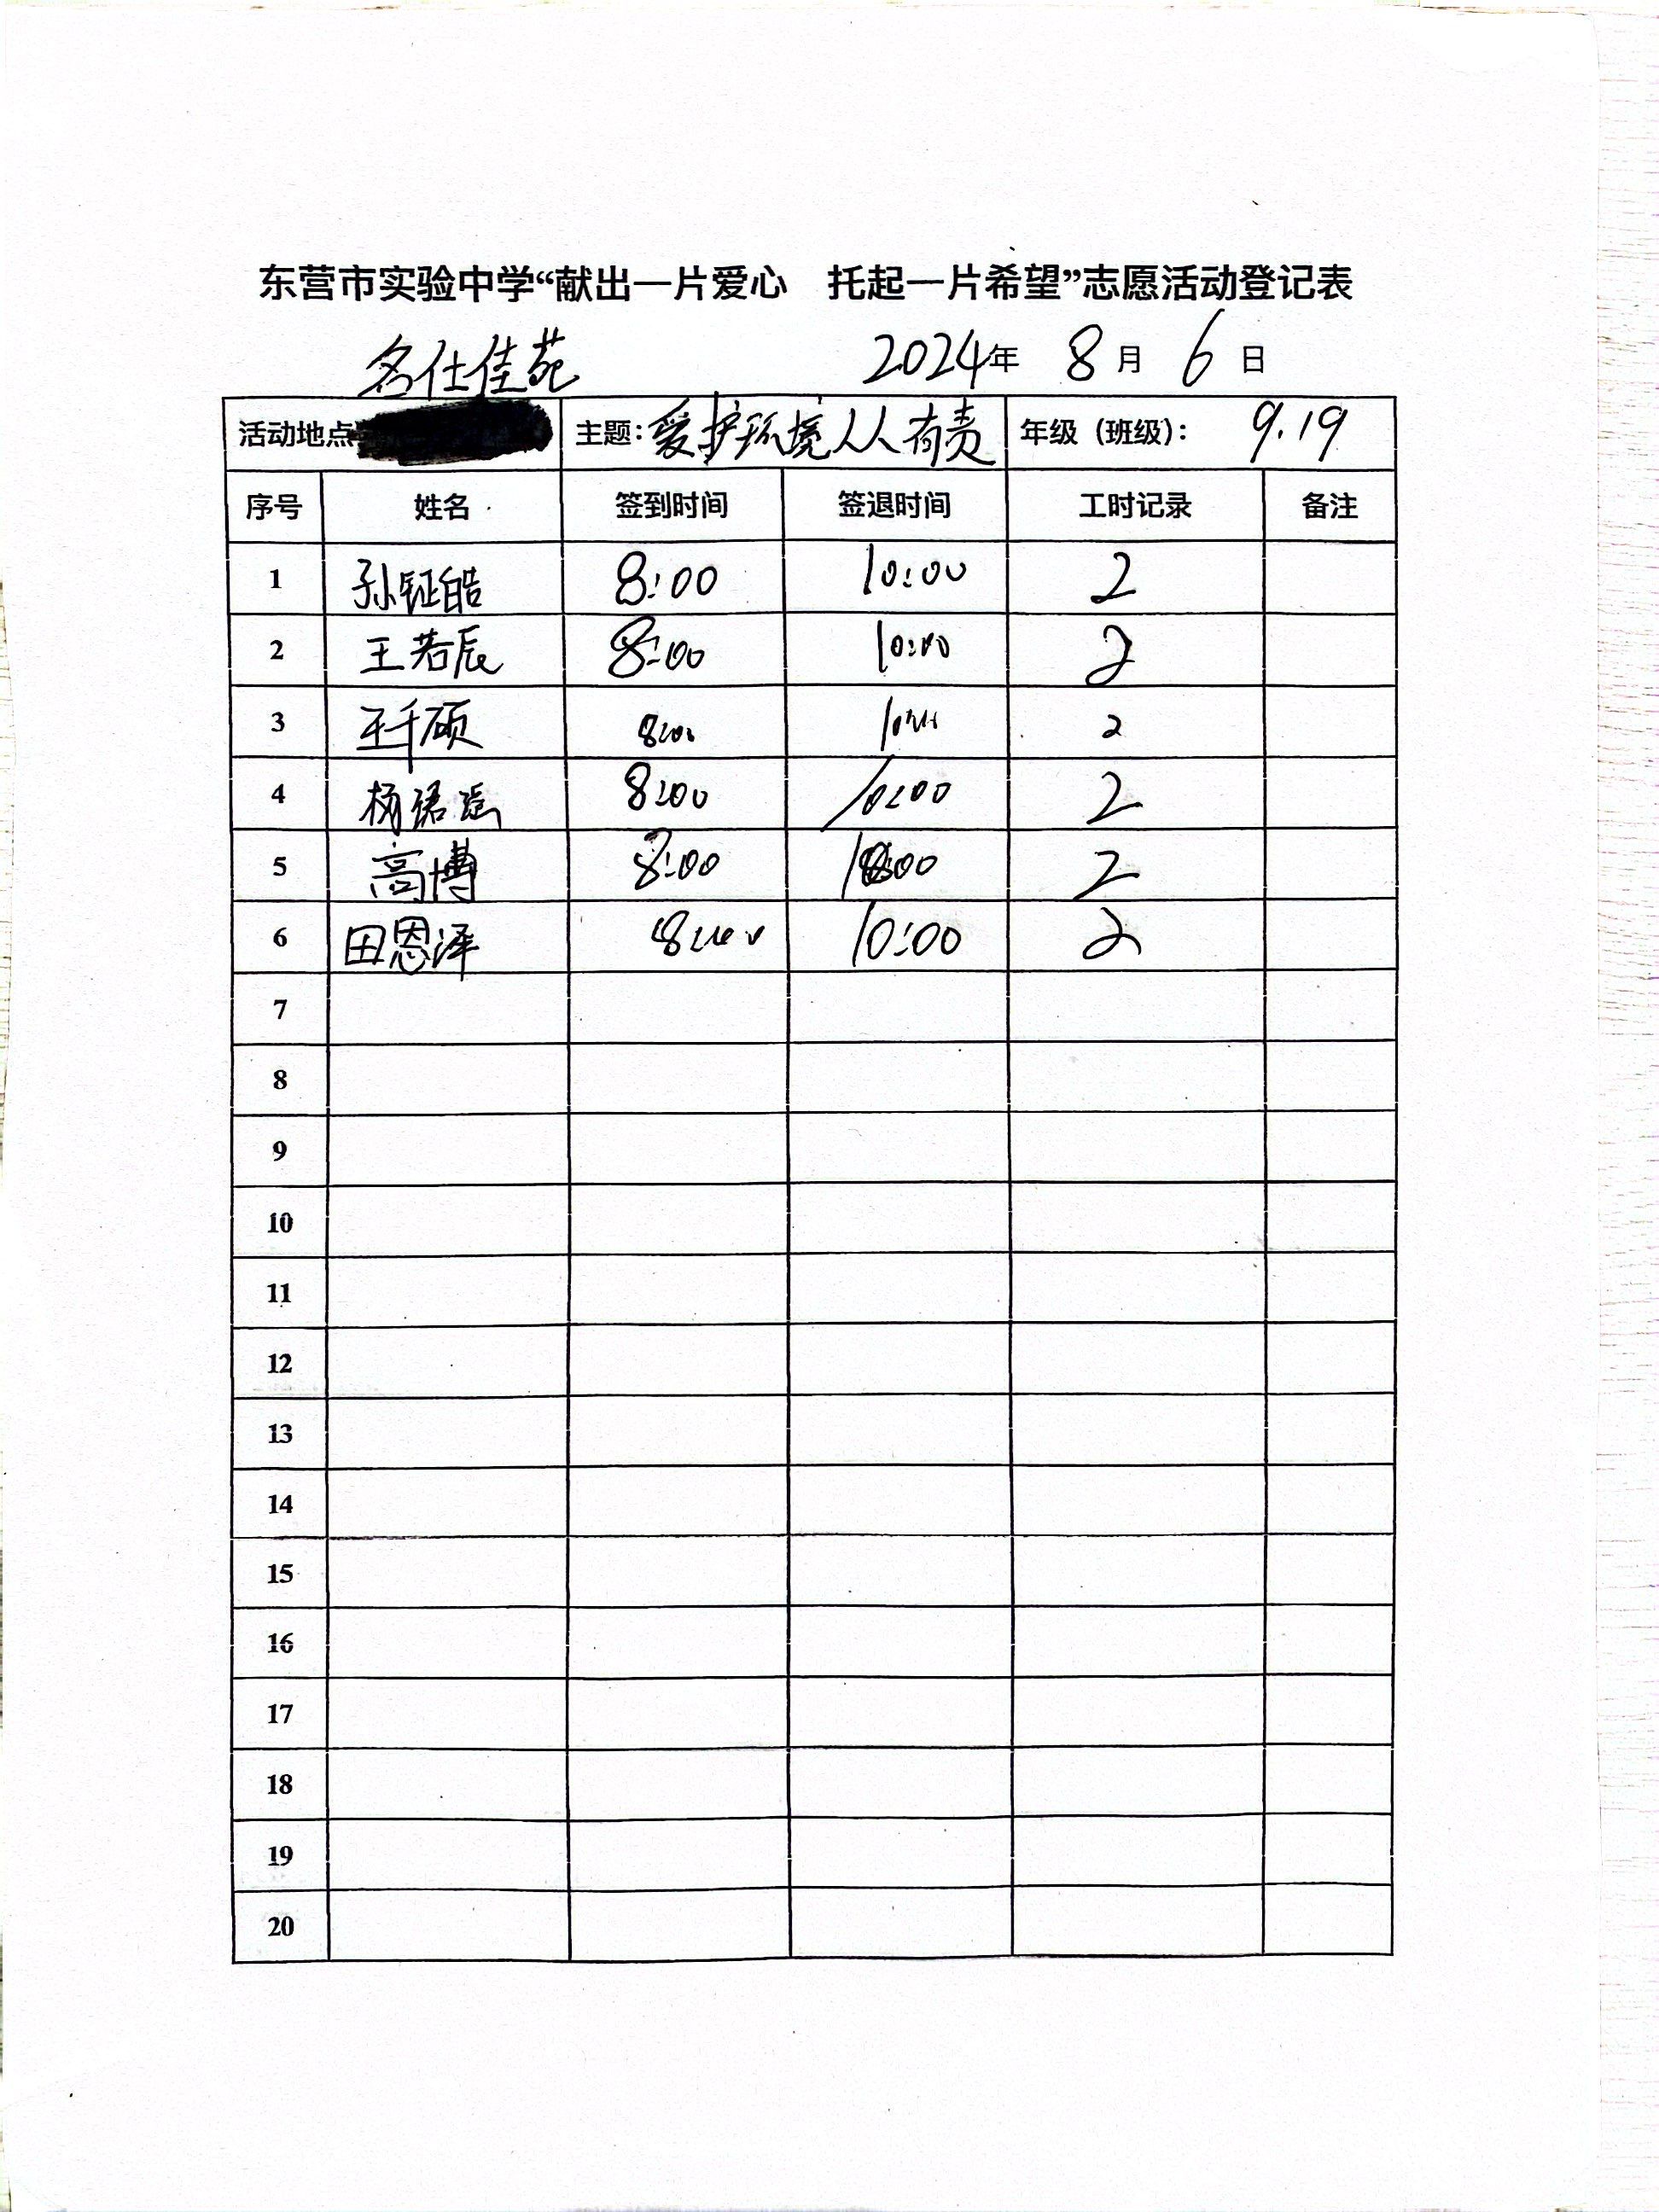 东营市实验中学“献出一片爱心　托起一片希望”志愿活动登记表
名仕佳苑 2024年 8月 6日
活动地点 主题：爱护环境人人有责 年级（班级）： 9.19
序号 姓名 签到时间 签退时间 工时记录 备注
1 孙钲皓 8:00 10:00 2
2 王若辰 8:00 10:00 2
3 王千硕 8:00 2
4 杨诺瑶 8:00 10:00 2
5 高博 8:00 10:00 2
6 田恩泽 8:00 10:00 2
7
8
9
10
11
12
13
14
15
16
17
18
19
20